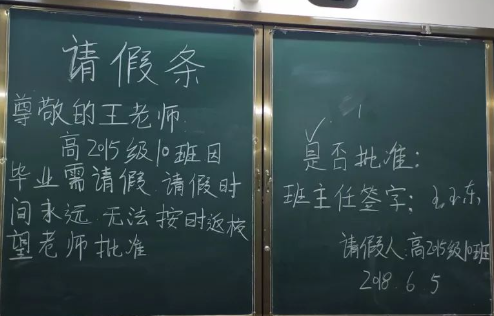 请假条
尊敬的王老师
高2015级10班因
毕业需请假.请假时
间永远 无法按时返校
望老师批准
✓
是否批准：
班主任签字：王玉东
请假人:高2015级10班
2018.6.5